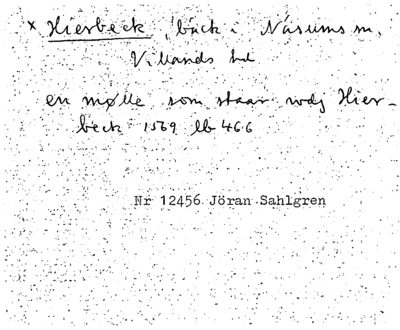 x Hierbeck, bäck i Näsums sn,
Villands hd
en mølle som staar vdj Hier-
beck 1569 lb 466
Nr 12456 Jöran Sahlgren